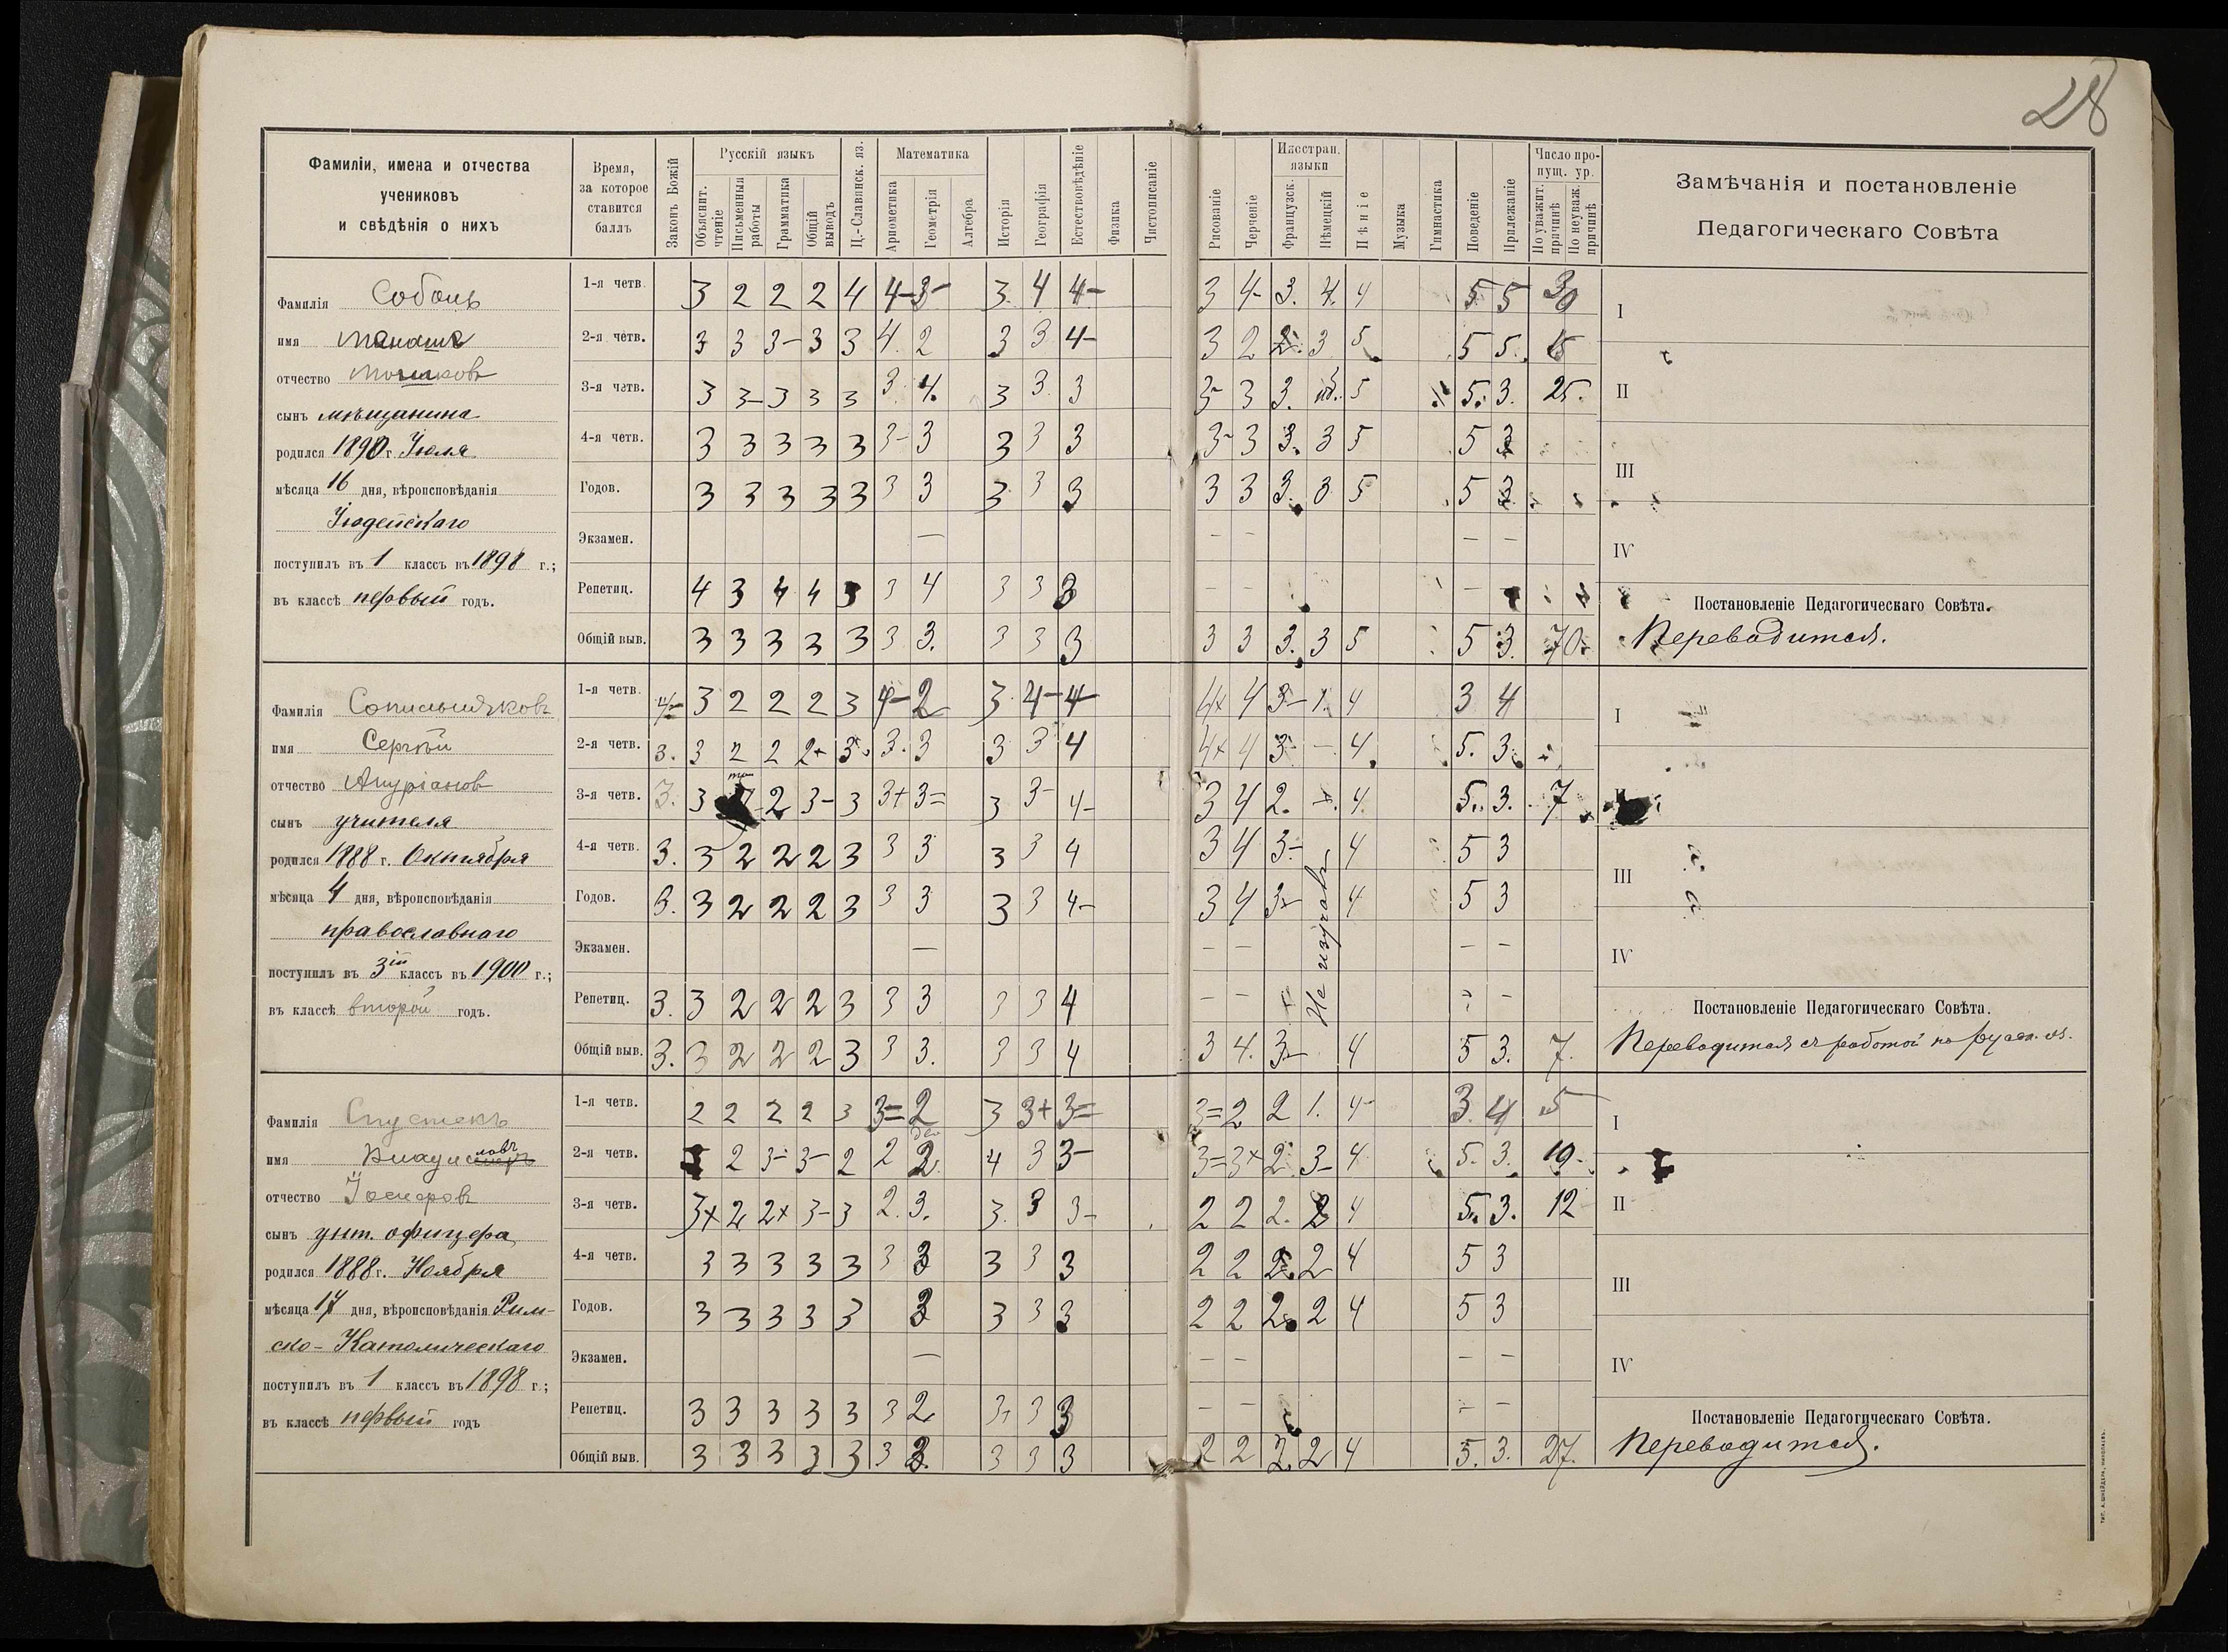 28
Фамиліи, имена и отчества
учениковъ
и свѣдѣнія о нихъ
Время,
за которое
ставится
баллъ
Законъ Божій
Русскій языкъ
Объяснит. чтеніе
Письменныя работы
Грамматика
Общій выводъ
Ц.-Славянск. яз.
Математика
Ариѳметика
Геометрія
Алгебра
Исторія
Географія
Естествовѣдѣніе
Физика
Чистописаніе
Рисованіе
Черченіе
Иностран. языки
Французск.
Нѣмецкій
Пѣніе
Музыка
Гимнастика
Поведеніе
Прилежаніе
Число пропущ. ур.
По уважит. причинѣ
По неуваж. причинѣ
Замѣчанія и постановленіе
Педагогическаго Совѣта
Фамилія Соболь
имя
отчество Мошковъ
сынъ мѣщанина
родился 1890 г. Іюля
мѣсяца 16 дня, вѣроисповѣданія
Іудейскаго
поступилъ въ 1 классъ въ 1898 г.;
въ классѣ первый годъ.
1-я четв. 3 2 2 2 4 4- 3- 3. 4 4- 3 4- 3. 4. 4 5 5 30
2-я четв. 3 3 3- 3 3 4. 2 3 3 4- 3 2 2. 3 5 5 5. 15
3-я четв. 3 3- 3 3 3 3. 4. 3 3 3 3- 3 3. 5 5. 3. 25.
4-я четв. 3 3 3 3 3 3- 3 3 3 3 3- 3 3. 3 5 5 3
Годов. 3 3 3 3 3 3 3 3 3 3 3 3 3. 3 5 5 3
Экзамен. — — — — —
Репетиц. 4 3 4 4 3 3 4 3 3 3 — — —
Общій выв. 3 3 3 3 3 3 3. 3 3 3 3 3 3. 3 5 5 3. 70.
I
II
III
IV
Постановленіе Педагогическаго Совѣта.
Переводится.
Фамилія Сопильняковъ
имя Сергѣй
отчество
сынъ учителя
родился 1888 г. Октября
мѣсяца 4 дня, вѣроисповѣданія
православнаго
поступилъ въ 3ій классъ въ 1900 г.;
въ классѣ второй годъ.
1-я четв. 4- 3 2 2 2 3 4- 2 3. 4- 4- 4+ 4 3- 1. 4 3 4
2-я четв. 3. 3 2 2 2+ 3. 3. 3 3 3 4 4+ 4 3- —. 4. 5. 3.
3-я четв. 3. 3 2 3- 3 3+ 3= 3 3- 4- 3 4 2. —. 4. 5. 3. 7
4-я четв. 3. 3 2 2 2 3 3 3 3 3 4 3 4 3- 4 5 3
Годов. 3. 3 2 2 2 3 3 3 3 3 4- 3 4 3- 4 5 3
Не изучалъ
Экзамен. — — — — —
Репетиц. 3. 3 2 2 2 3 3 3 3 3 4 — — — —
Общій выв. 3. 3 2 2 2 3 3 3. 3 3 4 3 4. 3- 4 5 3. 7.
I
II
III
IV
Постановленіе Педагогическаго Совѣта.
Переводится съ работой по русск. яз.
Фамилія Спустекъ
имя
отчество Іосифовъ
сынъ унт. офицера
родился 1888 г. Ноября
мѣсяца 17 дня, вѣроисповѣданія Рим-
ско-Католическаго
поступилъ въ 1 классъ въ 1898 г.;
въ классѣ первый годъ
1-я четв. 2 2 2 2 3 3= 2 3 3+ 3= 3= 2 2 1. 4- 3. 4 5
2-я четв. 2 3- 3- 2 2 2. 4 3 3- 3= 3+ 2. 3- 4. 5. 3. 10.
3-я четв. 3+ 2 2+ 3- 3 2. 3. 3. 3 3- 2 2 2. 2 4 5. 3. 12
4-я четв. 3 3 3 3 3 3 3 3 3 3 2 2 2. 2 4 5 3
Годов. 3 3 3 3 3 3 3 3 3 2 2 2. 2 4 5 3
Экзамен. — — — — —
Репетиц. 3 3 3 3 3 3 2 3. 3 3 — — — —
Общій выв. 3 3 3 3 3 3 3. 3 3 3 2 2 2. 2 4 5. 3. 27.
I
II
III
IV
Постановленіе Педагогическаго Совѣта.
Переводится.